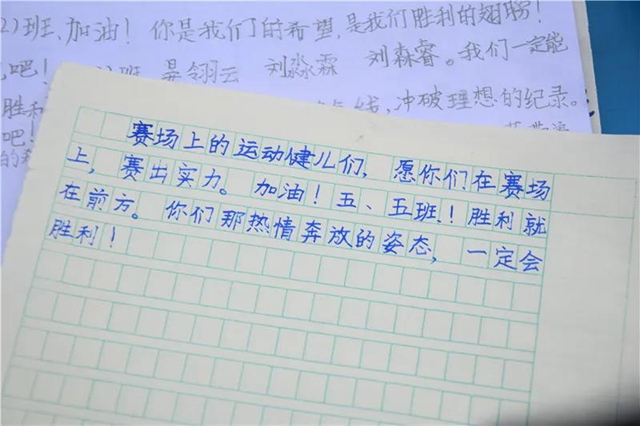 2)班,加油！你是我们的希望,是我们胜利的翅膀！
吧！
班 晏翎云 刘淼霖 刘森睿。我们一定能
胜利
线,冲破理想的纪录。
吧！
的
赛场上的运动健儿们，愿你们在赛场
上，赛出实力。加油！五、五班！胜利就
在前方。你们那热情奔放的姿态，一定会
胜利！